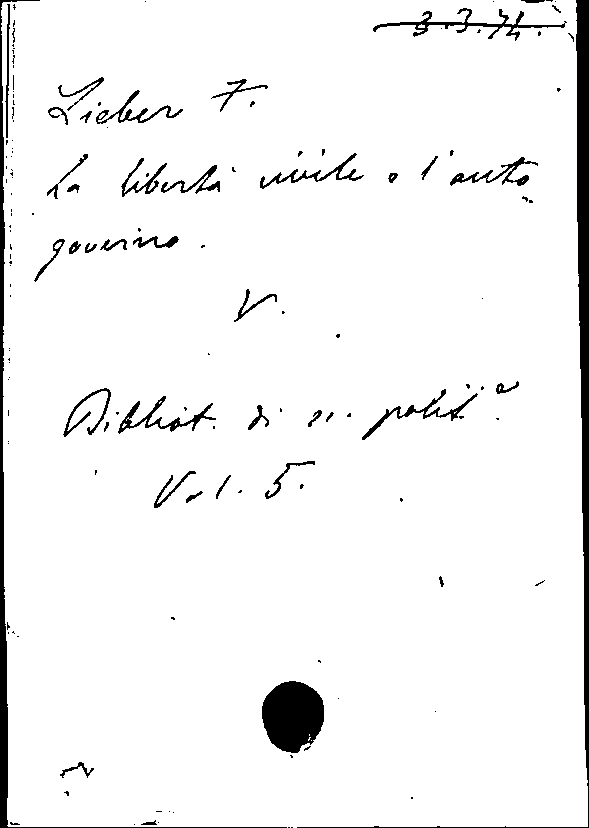 3.3.74.
Lieber F.
La libertà civile e l'auto
governo.
V.
Bibliot. di sc. polit.ª
Vol. 5.